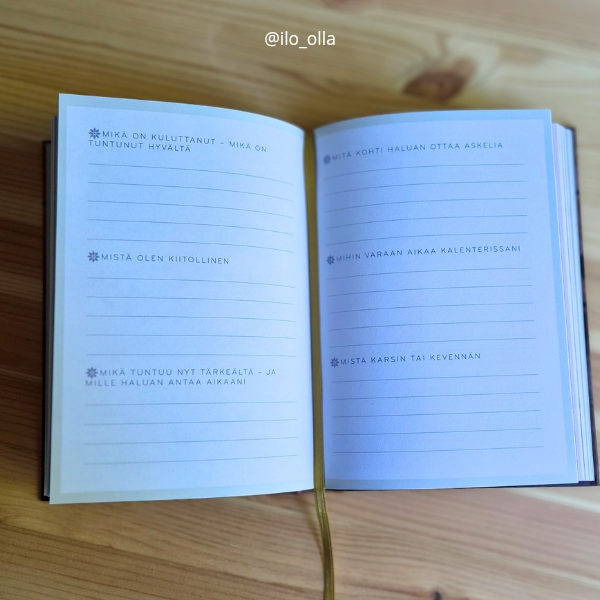 @ilo_olla
MIKÄ ON KULUTTANUT – MIKÄ ON
TUNTUNUT HYVÄLTÄ
MISTÄ OLEN KIITOLLINEN
MIKÄ TUNTUU NYT TÄRKEÄLTÄ – JA
MILLE HALUAN ANTAA AIKAANI
MITÄ KOHTI HALUAN OTTAA ASKELIA
MIHIN VARAAN AIKAA KALENTERISSANI
MISTÄ KARSIN TAI KEVENNÄN